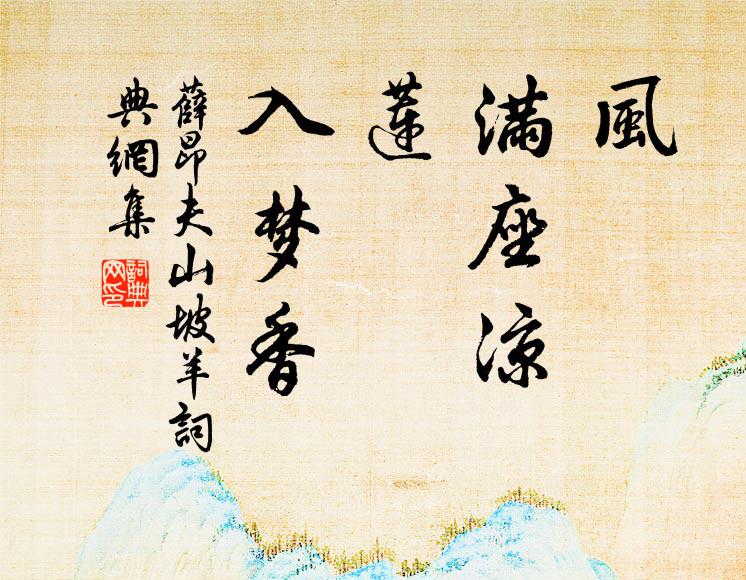 風
滿座凉
蓮
入梦香
薛昂夫山坡羊詞
典網集
詞典网印